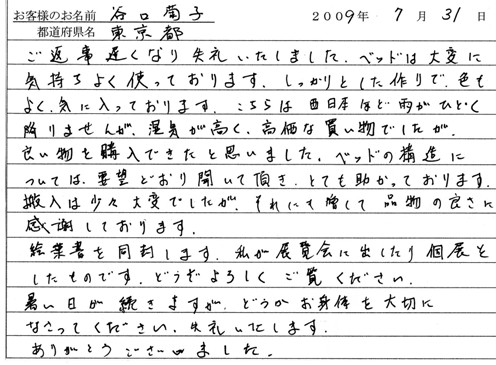 お客様のお名前 谷口蘭子 2009年 7月 31日
都道府県名 東京都
ご返事遅くなり失礼いたしました。ベッドは大変に
気持ちよく使っております。しっかりとした作りで、色も
よく、気に入っております。こちらは西日本ほど雨がひどく
降りませんが、湿気が高く、高価な買い物でしたが、
良い物を購入できたと思いました。ベッドの構造に
ついては、要望どおり聞いて頂き、とても助かっております。
搬入は少々大変でしたが、それにも増して品物の良さに
感謝しております。
絵葉書を同封します。私が展覧会に出したり個展を
したものです。どうぞよろしくご覧ください。
暑い日が続きますが、どうかお身体を大切に
なさってください。失礼いたします。
ありがとうございました。